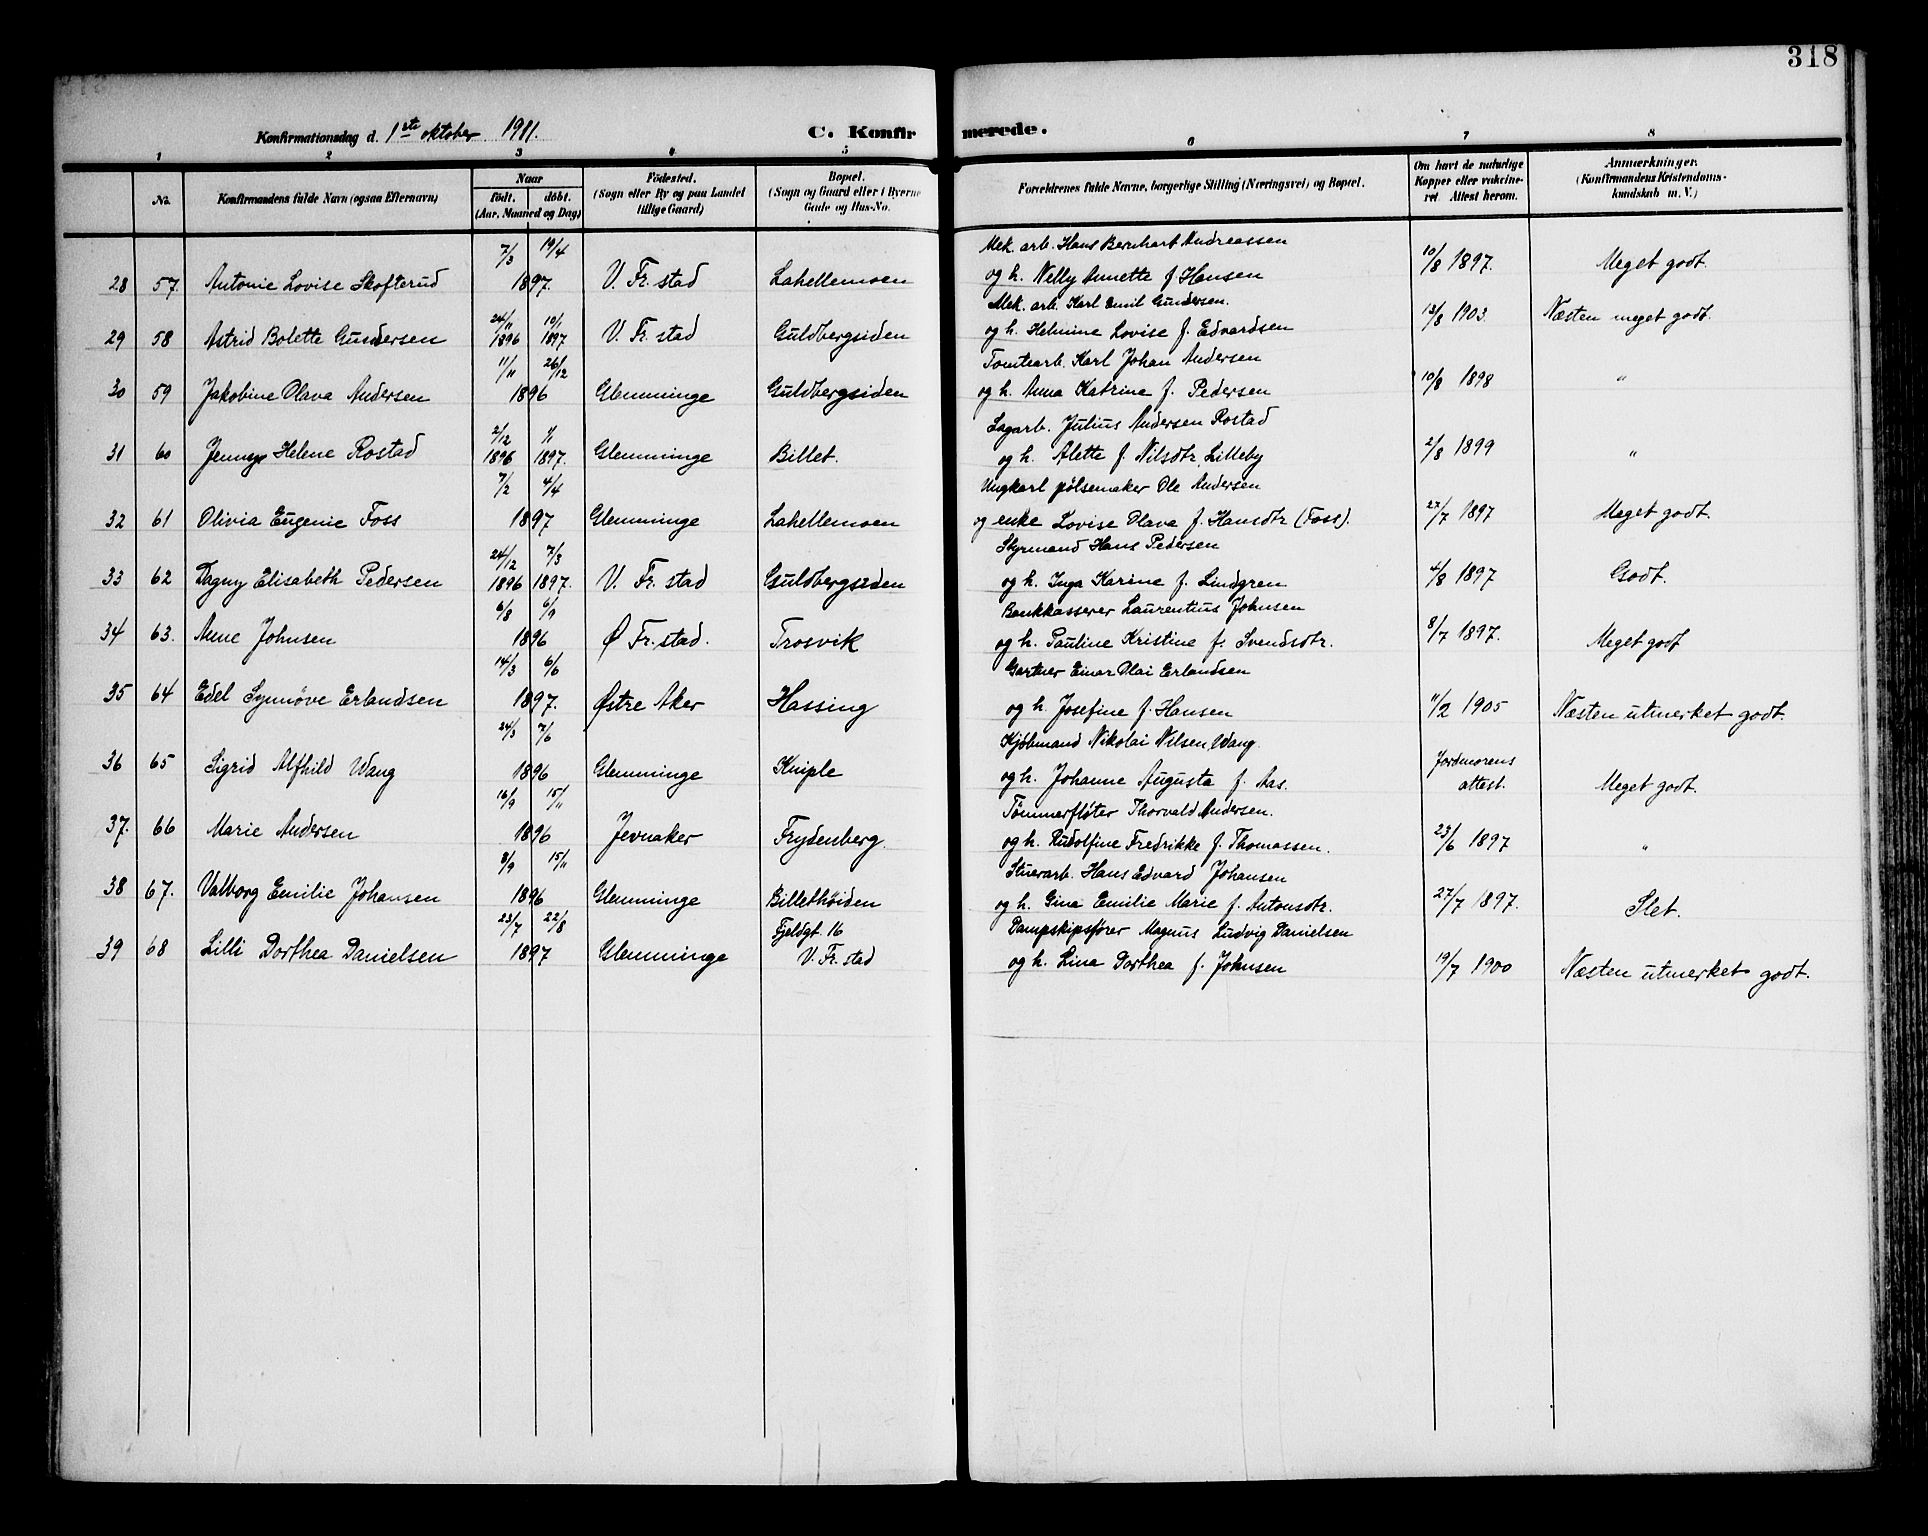 318
Konfirmationsdag d. 1ste oktober 1911.
C. Konfirmerede.
1 2 3 4 5 6 7 8
No. Konfirmandens fulde Navn (ogsaa Efternavn) Naar født. døbt. (Aar, Maaned og Dag) Födested. (Sogn eller By og paa Landet tillige Gaard) Bopæl. (Sogn og Gaard eller i Byerne Gade og Hus-No. Forældrenes fulde Navne, borgerlige Stilling (Næringsvei) og Bopæl. Om havt de naturlige Kopper eller vakcineret Attest herom. Anmærkninger. (Konfirmandens Kristendomskundskab m. V.)
7/3 19/4 Mek. arb. Hans Bernhart Andreassen
28 57. Antonie Lovise Skofterud 1897. V. Fr.stad Lahellemoen og h. Nelly Annette f. Hansen 10/8 1897. Meget godt.
24/11 10/1 Mek. arb. Karl Emil Gundersen.
29 58 Astrid Bolette Gundersen 1896 1897 V. Fr.stad Guldbergsiden og h. Helmine Lovise f. Edvardsen 13/8 1903. Næsten meget godt.
11/11 26/12 Tomtearb. Karl Johan Andersen
30 59 Jakobine Olava Andersen 1896 Glemminge Guldbergsiden og h. Anna Katrine f. Pedersen 10/8 1898 "
2/12 1/1 Sagarb. Julius Andersen Rostad
31 60 Jenny Helene Rostad 1896 1897. Glemminge Billet. og h. Alette f. Nilsdtr. Lilleby 2/8 1899 "
7/2 4/4 Ungkarl pølsemaker Ole Andersen
32 61 Olivia Eugenie Foss 1897 Glemminge Lahellemoen og enke Lovise Olava f. Hansdtr (Foss). 27/7 1897 Meget godt
24/12 7/3 Styrmand Hans Pedersen
33 62 Dagny Elisabeth Pedersen 1896 1897. V. Fr.stad Guldbergsiden og h. Inga Karine f. Lindgren 4/8 1897 Godt.
6/8 6/9 Bankkasserer Laurentius Johnsen
34 63. Anne Johnsen 1896 Ø Fr.stad. Trosvik og h. Pauline Kristine f. Svendsdtr. 8/7 1897. Meget godt
14/3 6/6 Gartner Einar Olai Erlandsen
35 64 Edel Synnöve Erlandsen 1897. Østre Aker Hassing og h. Josefine f. Hansen 11/2 1905 Næsten utmerket godt.
24/3 7/6 Kjöbmand Nikolai Nilsen Wang.
36 65 Sigrid Alfhild Wang 1896 Glemminge Kniple og h. Johanne Augusta f. Aas. Jordmorens attest. Meget godt.
16/9 15/11 Tömmerfløter Thorvald Andersen.
37. 66 Marie Andersen 1896 Jevnaker Frydenberg. og h. Rudolfine Fredrikke f. Thomassen. 23/6 1897 "
3/9 15/11 Stuerarb. Hans Edvard Johansen
38 67. Valborg Emilie Johansen 1896 Glemminge Billethöiden og h. Gina Emilie Marie f. Antonsdtr. 27/7 1897. Slet.
23/7 22/8 Fjeldgt. 16 Dampskipsfører Magnus Ludvig Danielsen
39 68 Lilli Dorthea Danielsen 1897 Glemminge V. Fr.stad og h. Lina Dorthea f. Johnsen 19/7 1900 Næsten utmerket godt.